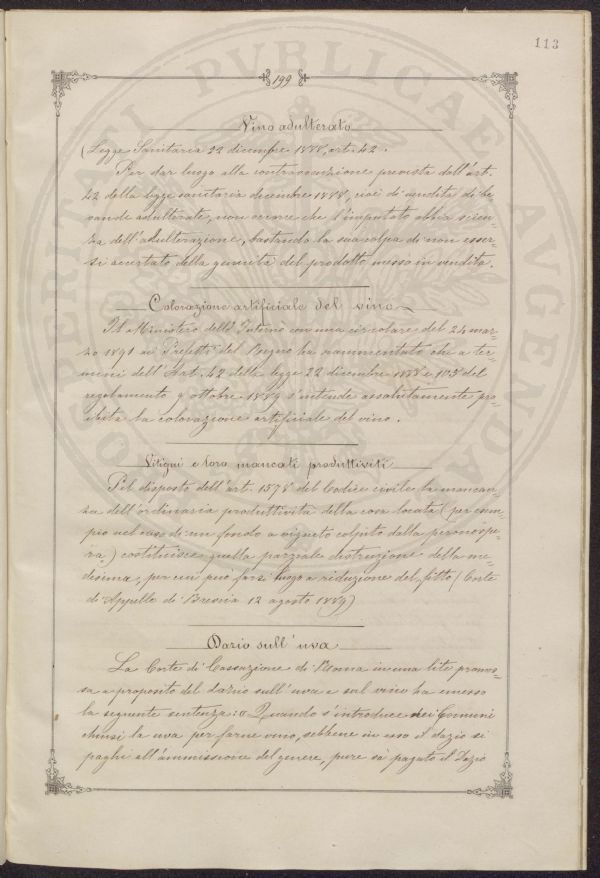 113
199
Vino adulterato
(Legge Sanitaria 22 dicembre 1888, art. 42.
Per dar luogo alla contravvenzione prevista dell'art.
42 della legge sanitaria dicembre 1888, cioè di vendita di be-
vande adulterate, non occorre che l'imputato abbia scien-
za dell'adulterazione, bastando la sua colpa di non esser-
si accertato della genuità del prodotto messo in vendita.
Colorazione artificiale del vino
Il Ministero dell'Interno con una circolare del 24 mar-
zo 1891 ai Prefetti del Regno ha rammentato che a ter-
mini dell'Art. 42 della legge 22 dicembre 1888 e 105 del
regolamento 9 ottobre 1889 s'intende assolutamente pro-
ibita la colorazione artificiale del vino.
Vitigni e loro mancati produttiviti
Pel disposto dell'art. 1578 del Codice civile la mancan-
za dell'ordinaria produttività della cosa locata (per esem-
pio nel caso di un fondo a vigneto colpito dalla peronospe-
ra) costituisce quella parziale distruzione della me-
desima, per cui può farsi luogo a riduzione del fitto (Corte
di Appello di Brescia 12 agosto 1889)
Dazio sull'uva
La Corte di Cassazione di Roma in una lite promos-
sa a proposito del dazio sull'uva e sul vino ha emesso
la seguente sentenza: « Quando s'introduce nei Comuni
chiusi la uva per farne vino, sebbene in uso il dazio si
paghi all'ammissione del genere, pure sà pagato il Dazio
PROSPERITATI PVBLICAE AVGENDAE